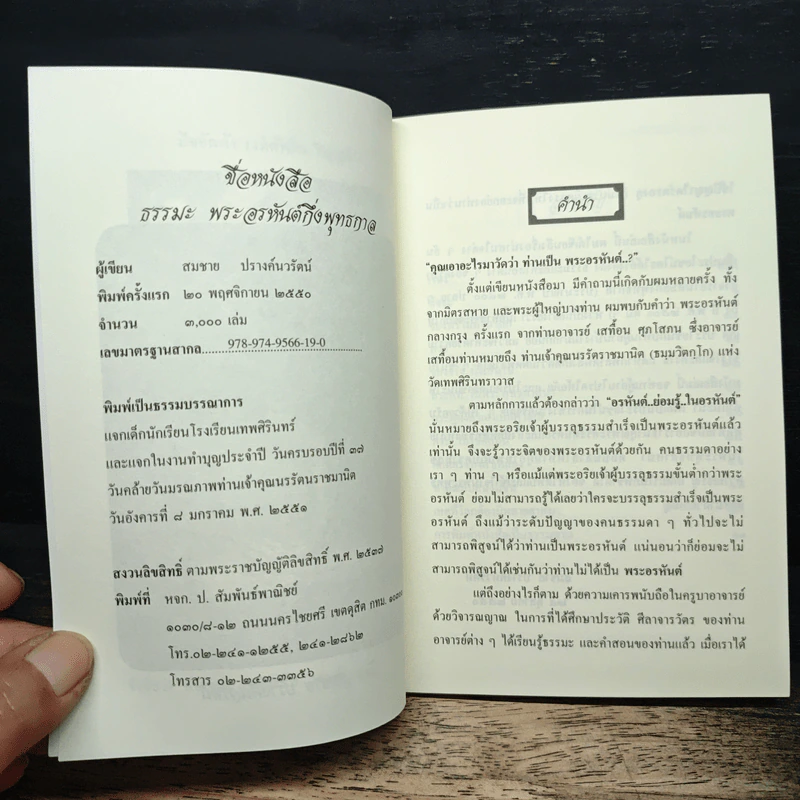 ชื่อหนังสือ
ธรรมะ พระอรหันต์กึ่งพุทธกาล
ผู้เขียน สมชาย ปรางค์นวรัตน์
พิมพ์ครั้งแรก ๒๐ พฤศจิกายน ๒๕๕๐
จำนวน ๓,๐๐๐ เล่ม
เลขมาตรฐานสากล 978-974-9566-19-0
พิมพ์เป็นธรรมบรรณาการ
แจกเด็กนักเรียนโรงเรียนเทพศิรินทร์
และแจกในงานทำบุญประจำปี วันครบรอบปีที่ ๓๗
วันคล้ายวันมรณภาพท่านเจ้าคุณนรรัตนราชมานิต
วันอังคารที่ ๘ มกราคม พ.ศ. ๒๕๕๑
สงวนลิขสิทธิ์ ตามพระราชบัญญัติลิขสิทธิ์ พ.ศ. ๒๕๓๗
พิมพ์ที่ หจก. ป. สัมพันธ์พาณิชย์
๑๐๓๐/๘-๑๒ ถนนนครไชยศรี เขตดุสิต กทม.
โทร.๐๒-๒๔๑-๑๒๕๕, ๒๔๑-๒๘๖๒
โทรสาร ๐๒-๒๔๓-๓๓๕๖
คำนำ
"คุณเอาอะไรมาวัดว่า ท่านเป็น พระอรหันต์..?"
ตั้งแต่เขียนหนังสือมา มีคำถามนี้เกิดกับผมหลายครั้ง ทั้ง
จากมิตรสหาย และพระผู้ใหญ่บางท่าน ผมพบกับคำว่า พระอรหันต์
กลางกรุง ครั้งแรก จากท่านอาจารย์ เสทื้อน ศุภโสภน ซึ่งอาจารย์
เสทื้อนท่านหมายถึง ท่านเจ้าคุณนรรัตราชมานิต (ธมฺมวิตกฺโก) แห่ง
วัดเทพศิรินทราวาส
ตามหลักการแล้วต้องกล่าวว่า "อรหันต์..ย่อมรู้..ในอรหันต์"
นั่นหมายถึงพระอริยเจ้าผู้บรรลุธรรมสำเร็จเป็นพระอรหันต์แล้ว
เท่านั้น จึงจะรู้วาระจิตของพระอรหันต์ด้วยกัน คนธรรมดาอย่าง
เรา ๆ ท่าน ๆ หรือแม้แต่พระอริยเจ้าผู้บรรลุธรรมขั้นต่ำกว่าพระ
อรหันต์ ย่อมไม่สามารถรู้ได้เลยว่าใครจะบรรลุธรรมสำเร็จเป็นพระ
อรหันต์ ถึงแม้ว่าระดับปัญญาของคนธรรมดา ๆ ทั่วไปจะไม่
สามารถพิสูจน์ได้ว่าท่านเป็นพระอรหันต์ แน่นอนว่าก็ย่อมจะไม่
สามารถพิสูจน์ได้เช่นกันว่าท่านไม่ได้เป็น พระอรหันต์
แต่ถึงอย่างไรก็ตาม ด้วยความเคารพนับถือในครูบาอาจารย์
ด้วยวิจารณญาณ ในการที่ได้ศึกษาประวัติ ศีลาจารวัตร ของท่าน
อาจารย์ต่าง ๆ ได้เรียนรู้ธรรมะ และคำสอนของท่านแล้ว เมื่อเราได้